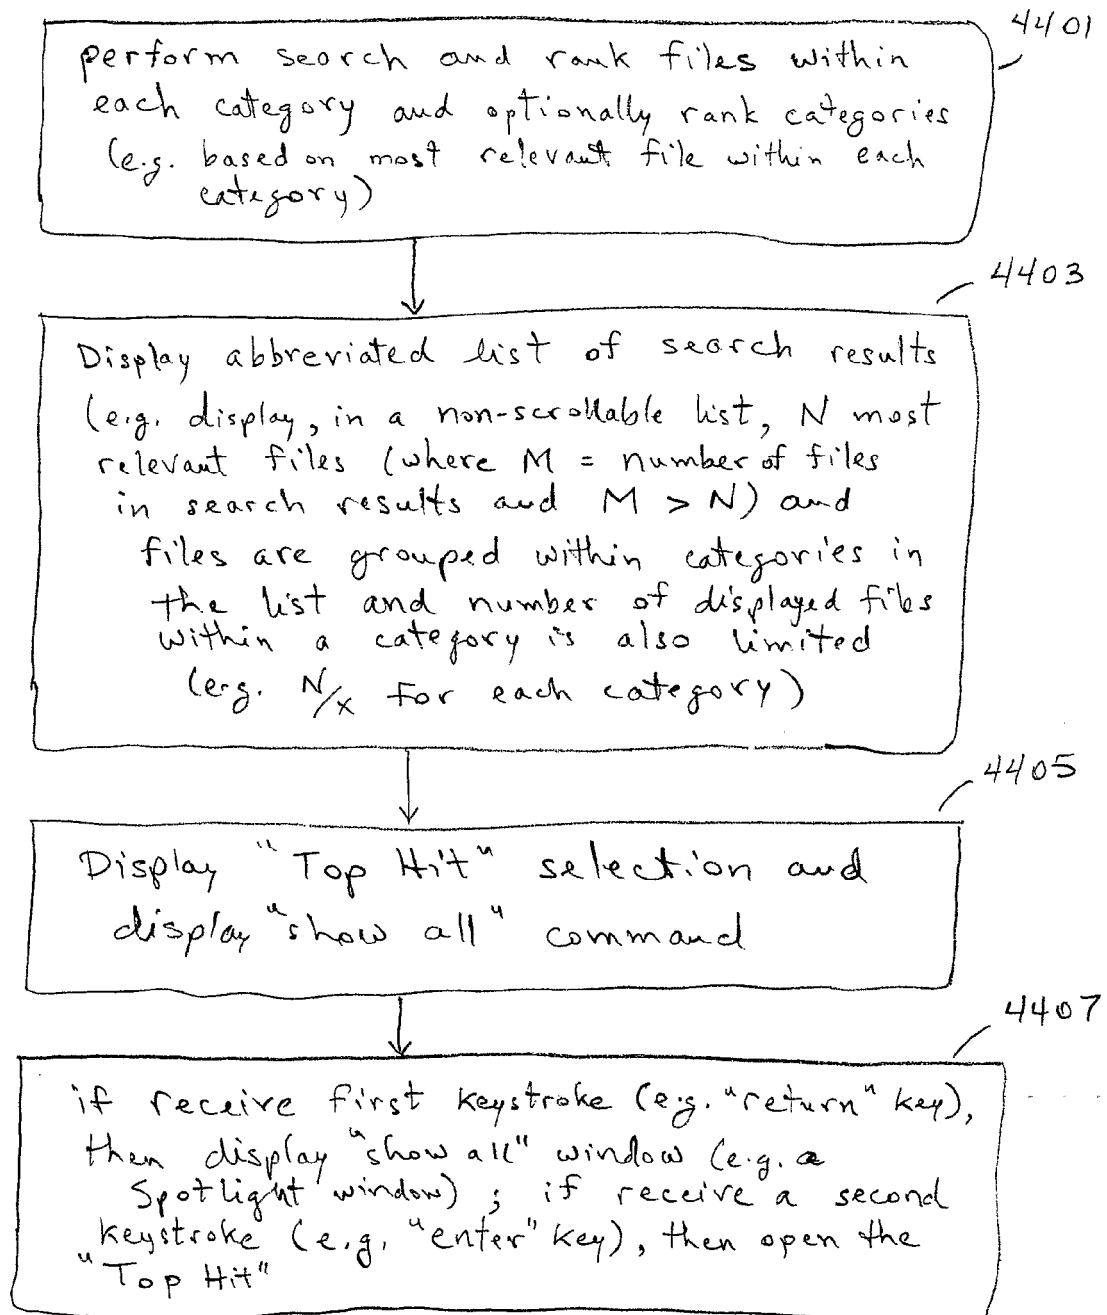 4401
perform search and rank files within
each category and optionally rank categories
(e.g. based on most relevant file within each
category)
4403
Display abbreviated list of search results
(e.g. display, in a non-scrollable list, N most
relevant files (where M = number of files
in search results and M > N) and
files are grouped within categories in
the list and number of displayed files
within a category is also limited
(e.g. N/x for each category)
4405
Display "Top Hit" selection and
display "show all" command
4407
if receive first keystroke (e.g. "return" key),
then display "show all" window (e.g. a
Spotlight window) ; if receive a second
keystroke (e.g. "enter" key), then open the
"Top Hit"